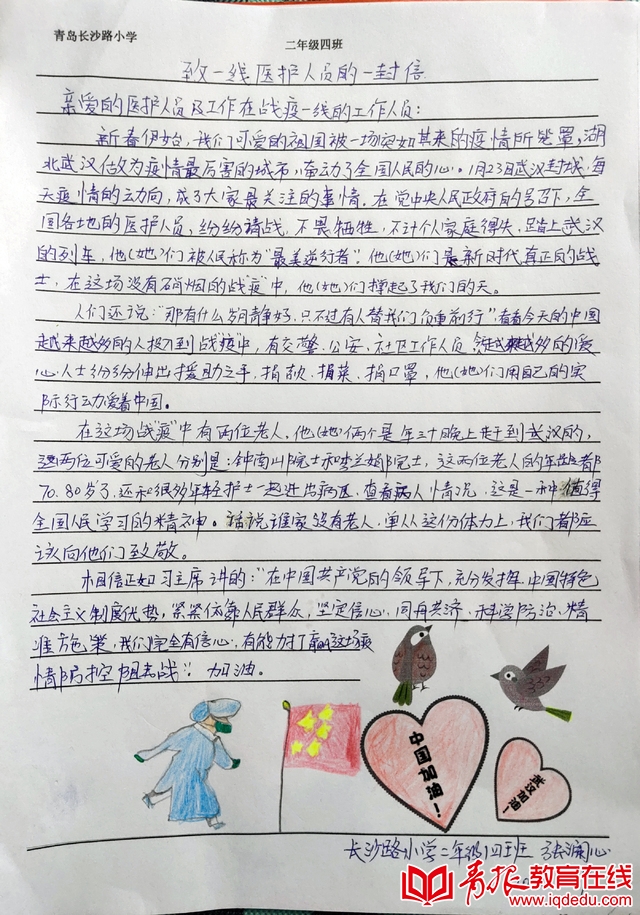 青岛长沙路小学
二年级四班
致一线医护人员的一封信
亲爱的医护人员及工作在战疫一线的工作人员:
新春伊始,我们可爱的祖国被一场突如其来的疫情所笼罩,湖
北武汉做为疫情最厉害的城市,牵动了全国人民的心。1月23日武汉封城,每
天疫情的动向,成了大家最关注的事情。在党中央人民政府的号召下,全
国各地的医护人员,纷纷请战,不畏牺牲,不计个人家庭得失,踏上武汉
的列车,他(她)们被人民称为"最美逆行者"。他(她)们是新时代真正的战
士,在这场没有硝烟的"战疫"中,他(她)们撑起了我们的天。
人们还说:"那有什么岁月静好,只不过有人替我们负重前行"看看今天的中国
越来越多的人投入到"战疫"中,有交警、公安、社区工作人员,越来越多的爱
心人士纷纷伸出援助之手,捐款、捐菜、捐口罩,他(她)们用自己的实
际行动爱着中国。
在这场"战疫"中有两位老人,他(她)俩个是年三十晚上赶到武汉的,
这两位可爱的老人分别是:钟南山院士和李兰娟院士,这两位老人的年龄都
70.80岁了,还和很多年轻护士一起进出病区,查看病人情况,这是一种值得
全国人民学习的精神。话说谁家没有老人,单从这份体力上,我们都应
该向他们致敬。
相信正如习主席讲的:"在中国共产党的领导下,充分发挥中国特色
社会主义制度优势,紧紧依靠人民群众,坚定信心、同舟共济、科学防治、精
准施策,我们完全有信心、有能力打赢这场疫
情防控阻击战"。加油。
中国加油!
武汉加油!
长沙路小学二年级四班 张澜心
青报教育在线
www.iqdedu.com